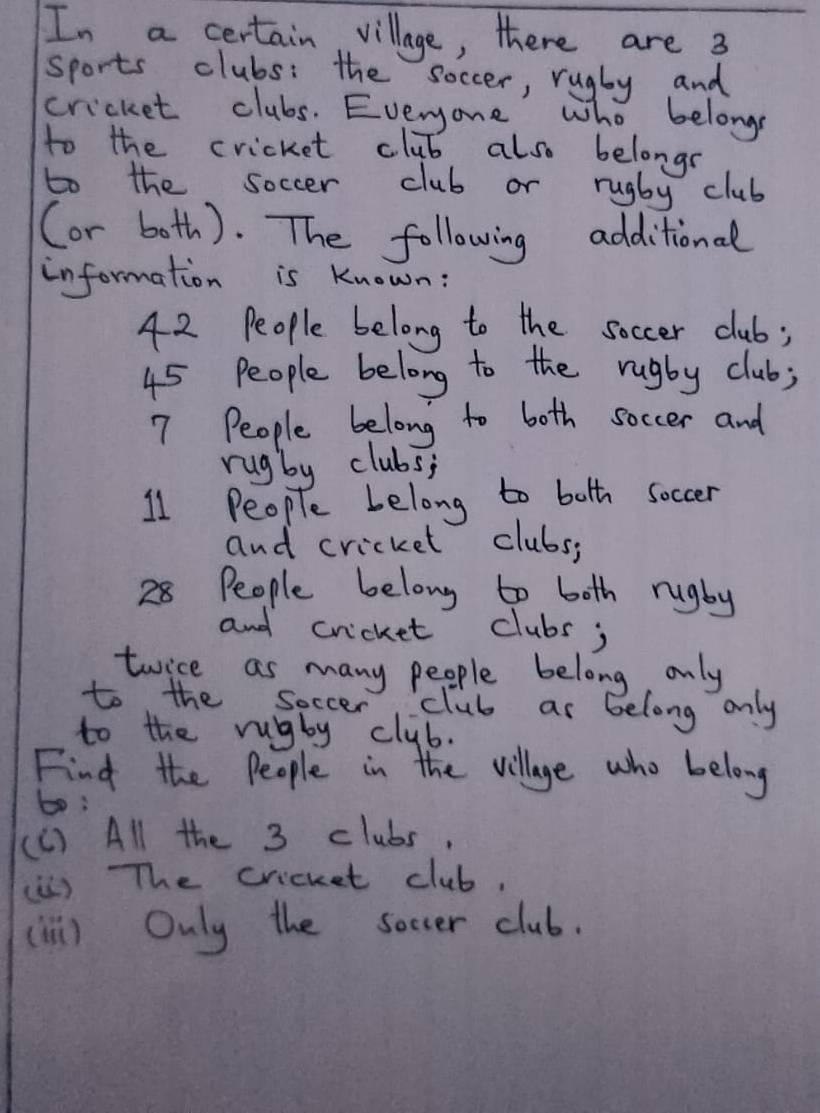 In a certain village, there are 3
sports clubs: the soccer, rugby and
cricket clubs. Everyone who belongs
to the cricket club also belongs
to the soccer club or rugby club
(or both). The following additional
information is known:
42 People belong to the soccer club;
45 People belong to the rugby club;
7 People belong to both soccer and
rugby clubs;
11 People belong to both soccer
and cricket clubs;
28 People belong to both rugby
and cricket clubs;
twice as many people belong only
to the soccer club as belong only
to the rugby club.
Find the People in the village who belong
to:
(i) All the 3 clubs.
(ii) The cricket club.
(iii) Only the soccer club.